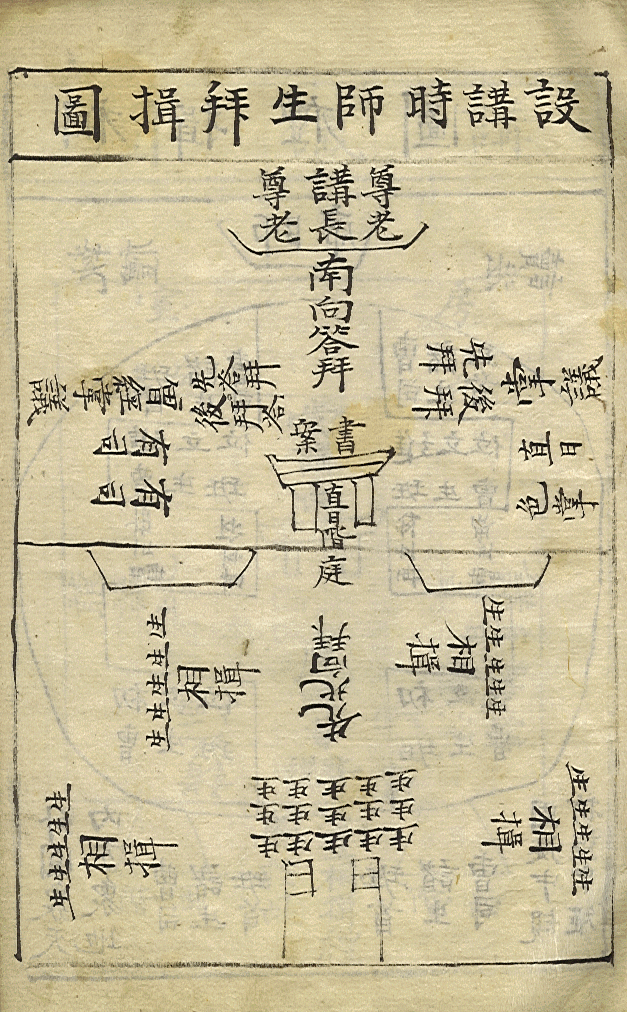 設講時師生拜揖圖
尊老
講長
尊老
南向答拜
先拜
後拜
直日
先答拜
後答拜
有司
有司
書案
直日
階
庭
先北向拜
生生生生生
相揖
生生生生生
相揖
生生生生生
相揖
生生生生生
相揖
生生生
生生生
生生生
生生生
生生生